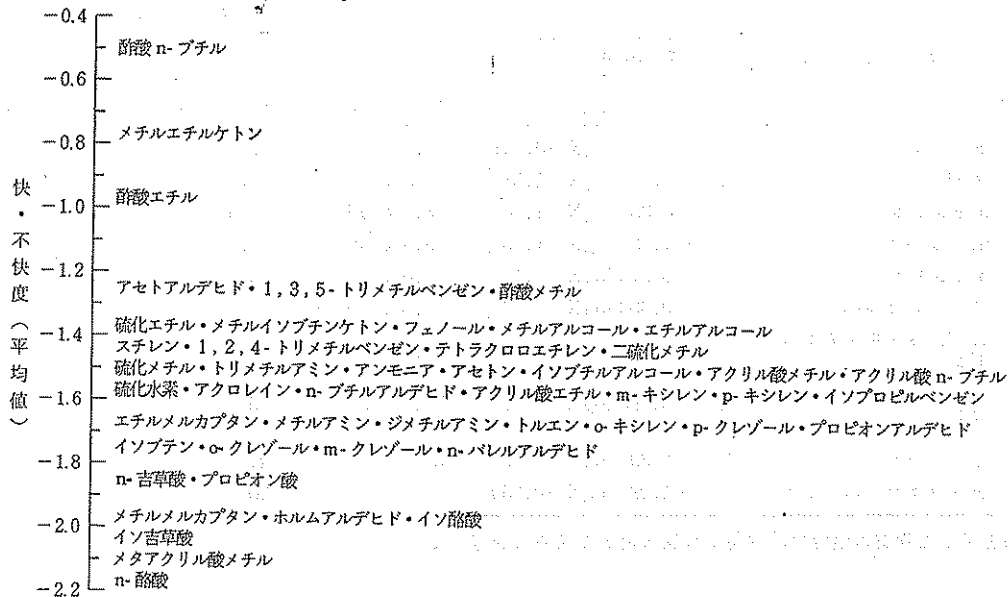 -0.4
酢酸 n-ブチル
-0.6
メチルエチルケトン
-0.8
酢酸エチル
-1.0
-1.2
アセトアルデヒド・1,3,5-トリメチルベンゼン・酢酸メチル
硫化エチル・メチルイソブチンケトン・フェノール・メチルアルコール・エチルアルコール
-1.4
スチレン・1,2,4-トリメチルベンゼン・テトラクロロエチレン・二硫化メチル
硫化メチル・トリメチルアミン・アンモニア・アセトン・イソブチルアルコール・アクリル酸メチル・アクリル酸 n-ブチル
硫化水素・アクロレイン・n-ブチルアルデヒド・アクリル酸エチル・m-キシレン・p-キシレン・イソプロピルベンゼン
-1.6
エチルメルカプタン・メチルアミン・ジメチルアミン・トルエン・o-キシレン・p-クレゾール・プロピオンアルデヒド
イソブテン・o-クレゾール・m-クレゾール・n-バレルアルデヒド
-1.8
n-吉草酸・プロピオン酸
メチルメルカプタン・ホルムアルデヒド・イソ酪酸
-2.0
イソ吉草酸
メタアクリル酸メチル
n-酪酸
-2.2
快・不快度(平均値)